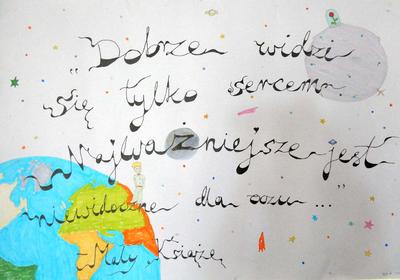 „Dobrze widzi
się tylko sercem.
Najważniejsze jest
niewidoczne dla oczu ..."
Mały Książę